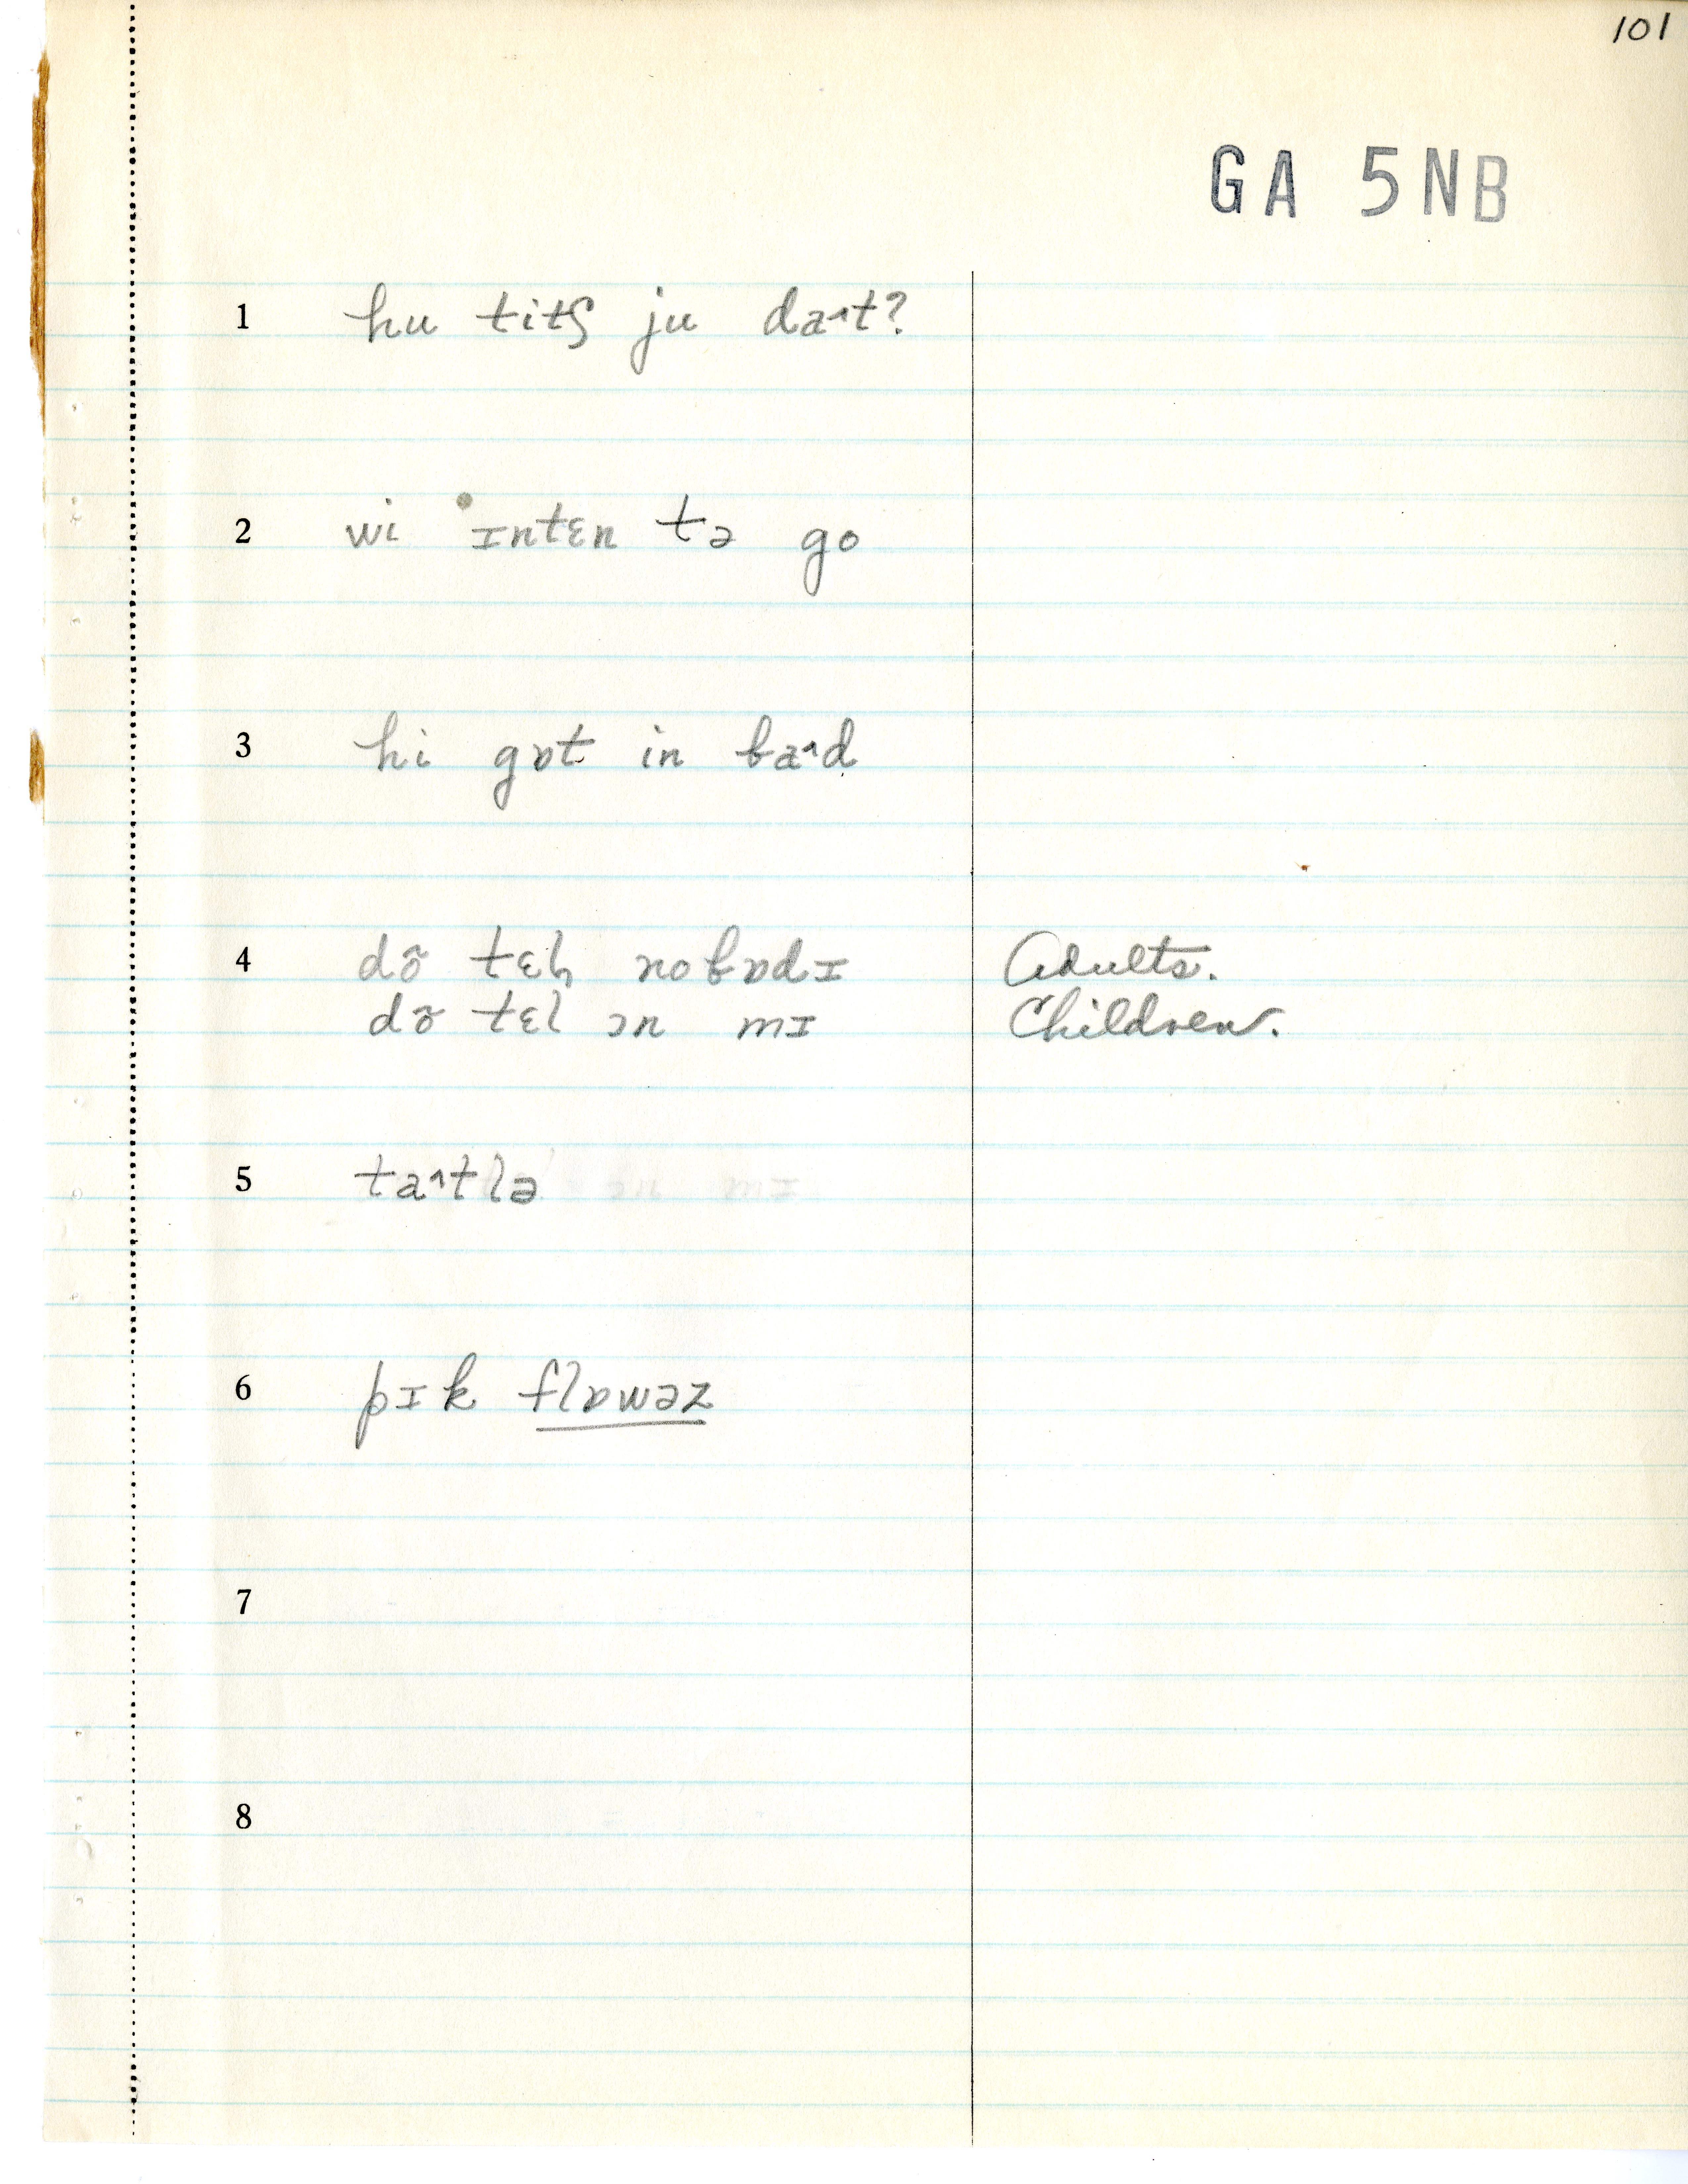 101
GA 5NB
1 hu titʃ ju da˄t?
2 wi ɪntɛn tə go
3 hi gɒt in ba˄d
4 dõ tɛl̩ nobɒdɪ Adults.
dõ tɛl ɔn mɪ Children.
5 ta˄tlə
6 pɪk flɒwəz
7
8